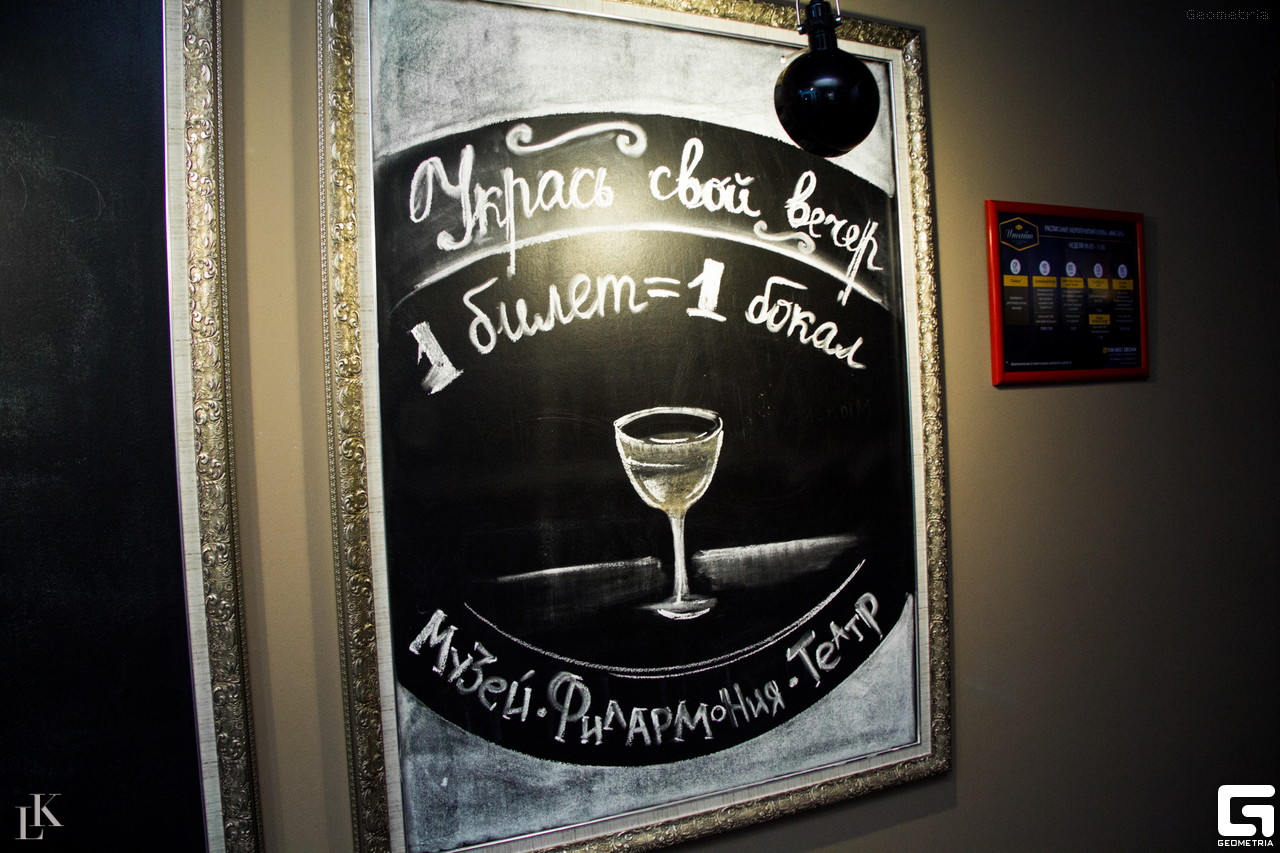 Geometria
Укрась свой вечер
1 билет=1 бокал
Музей·Филармония·Театр
LK
GEOMETRIA